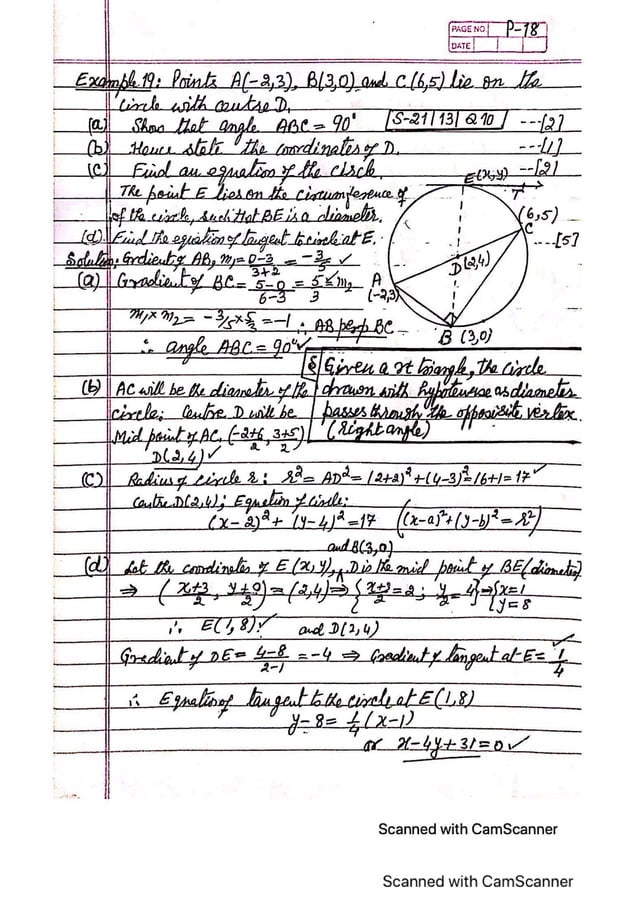 PAGE NO. P-18
DATE
Example 19: Points A(-2,3), B(3,0) and C(6,5) lie on the
circle with centre D.
(a) Show that angle ABC = 90° [S-21/13/Q10] ---[2]
(b) Hence state the coordinates of D. ---[1]
(c) Find an equation of the circle. ---[2]
E(x,y)
T
The point E lies on the circumference of
of the circle, such that BE is a diameter.
(6,5)
C
(d) Find the equation of tangent to circle at E. ---[5]
Solution: Gradient of AB, m₁ = 0-3/3+2 = -3/5 ✓
D(2,4)
(a) Gradient of BC = 5-0/6-3 = 5/3 = m₂
A
(-2,3)
m₁ x m₂ = -3/5 x 5/3 = -1 ∴ AB perp BC
B (3,0)
∴ angle ABC = 90° ✓
Given a rt triangle, the circle
drawn with hypotenuse as diameter
passes through the opposite vertex
(right angle)
(b) AC will be the diameter of the
circle; Centre D will be
Mid point of AC, (-2+6/2, 3+5/2)
D(2,4) ✓
(c) Radius of circle r: r² = AD² = (2+2)² + (4-3)² = 16+1 = 17 ✓
Centre D(2,4); Equation of circle:
(x-2)² + (y-4)² = 17 ((x-a)² + (y-b)² = r²)
and B(3,0)
(d) Let the coordinates of E (x,y), D is the mid point of BE (diameter)
⇒ (x+3/2, y+0/2) = (2,4) ⇒ {x+3/2 = 2; y/2 = 4} ⇒ {x=1
y=8
∴ E(1,8) ✓ and D(2,4)
Gradient of DE = 4-8/2-1 = -4 ⇒ Gradient of tangent at E = 1/4 ✓
∴ Equation of tangent to the circle at E(1,8)
y-8 = 1/4(x-1)
or x-4y+31=0 ✓
Scanned with CamScanner
Scanned with CamScanner